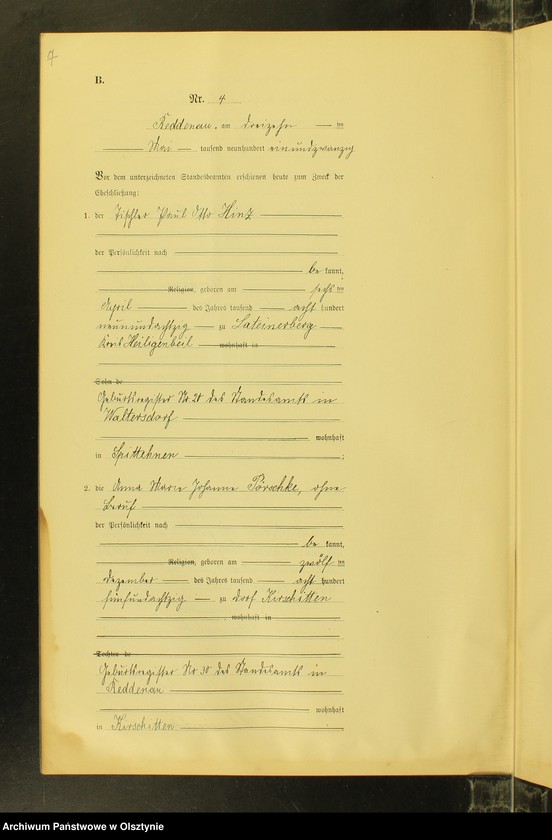 4
B.
Nr. 4
Reddenau, am dreizehn ten
Mai tausend neunhundert einundzwanzig
Vor dem unterzeichneten Standesbeamten erschienen heute zum Zweck der
Eheschließung:
1. der Tischler Paul Otto Hinz
der Persönlichkeit nach
be kannt,
Religion, geboren am sechs ten
April des Jahres tausend acht hundert
neunundachtzig zu Lateinerberg
Kreis Heiligenbeil wohnhaft in
Sohn de
Geburtsregister Nr. 20 des Standesamts in
Waltersdorf
wohnhaft
in Spittehnen ;
2. die Anna Marie Johanne Pörschke, ohne
Beruf
der Persönlichkeit nach
be kannt,
Religion, geboren am zwölf ten
Dezember des Jahres tausend acht hundert
fünfundachtzig zu Dorf Kirschitten
, wohnhaft in
Tochter de
Geburtsregister Nr 30 des Standesamts in
Reddenau
wohnhaft
in Kirschitten
Archiwum Państwowe w Olsztynie